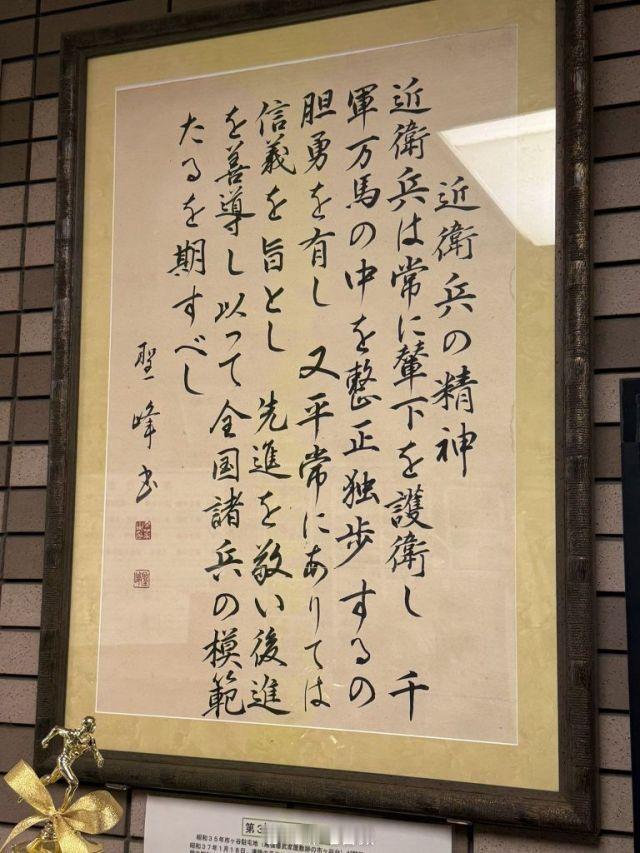 近衛兵の精神
近衛兵は常に輦下を護衛し 千
軍万馬の中を整正独歩するの
胆勇を有し 又平常にありては
信義を旨とし 先進を敬い後進
を善導し以って全国諸兵の模範
たるを期すべし
聖峰書
第3
昭和35年市ヶ谷駐屯地
昭和37年1月18日、